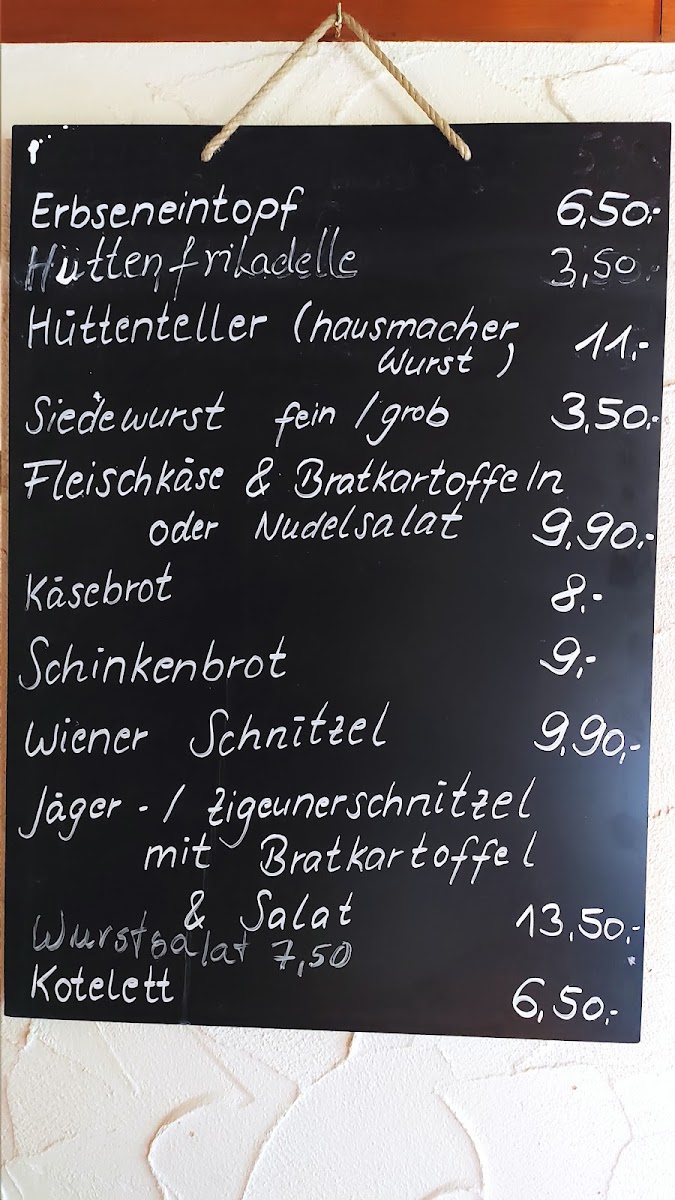 Erbseneintopf 6,50.-
Hüttenfrikadelle 3,50.-
Hüttenteller (hausmacher 11.-
Wurst)
Siedewurst fein / grob 3,50.-
Fleischkäse & Bratkartoffeln
oder Nudelsalat 9,90.-
Käsebrot 8.-
Schinkenbrot 9,-
Wiener Schnitzel 9,90,-
Jäger - / Zigeunerschnitzel
mit Bratkartoffel
& Salat 13,50,-
Wurstsalat 7,50
Kotelett 6,50,-